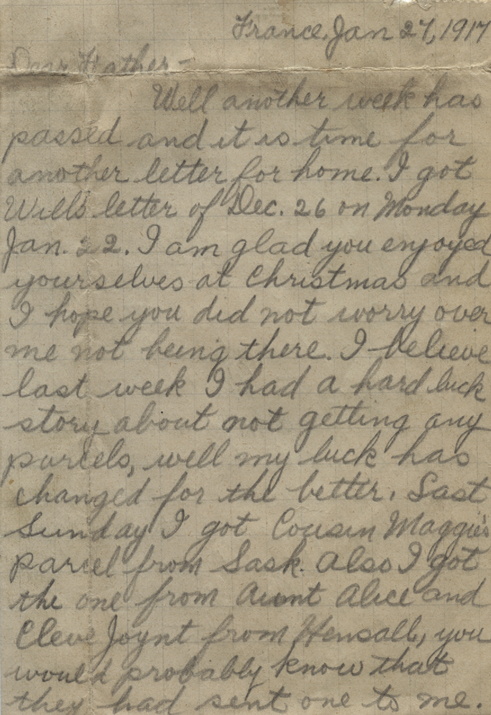 France, Jan 27, 1917
Dear Father -
Well another week has
passed and it is time for
another letter for home. I got
Will's letter of Dec. 26 on Monday
Jan. 22. I am glad you enjoyed
yourselves at Christmas and
I hope you did not worry over
me not being there. I believe
last week I had a hard luck
story about not getting any
parcels, well my luck has
changed for the better. Last
Sunday I got Cousin Maggie's
parcel from Sask. Also I got
the one from Aunt Alice and
Cleve Joynt from Hensall, you
would probably know that
they had sent one to me.